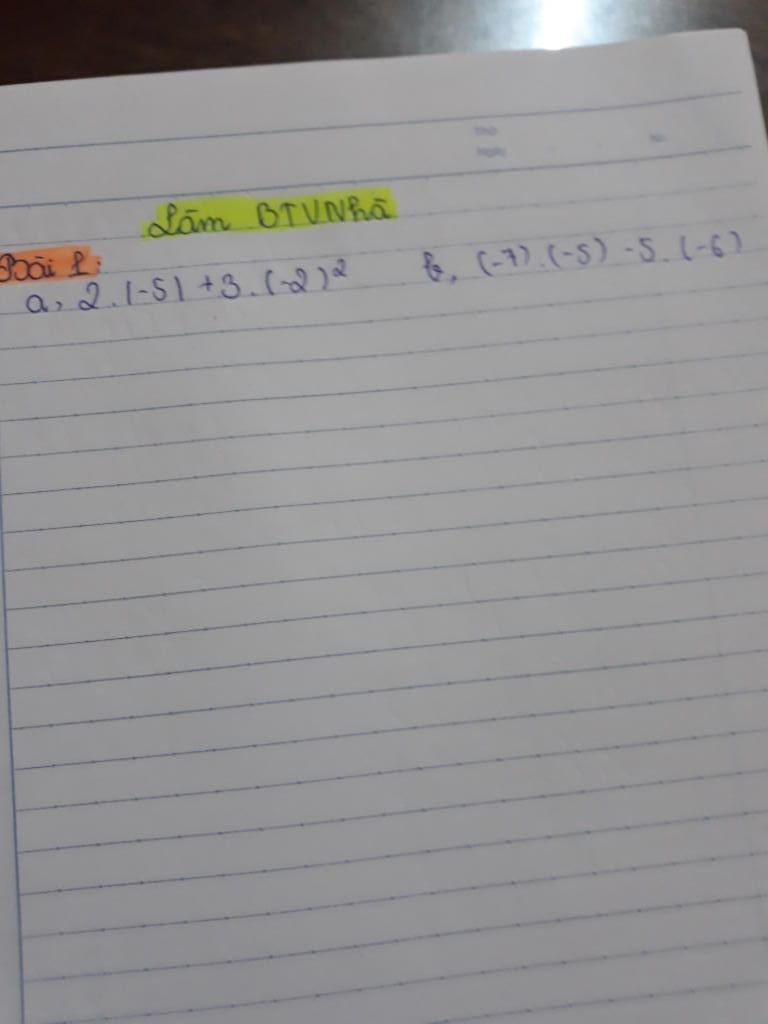 Làm BTVNhà
Bài 1:
a, 2.|-5| + 3.(-2)² b, (-7).(-5) - 5.(-6)